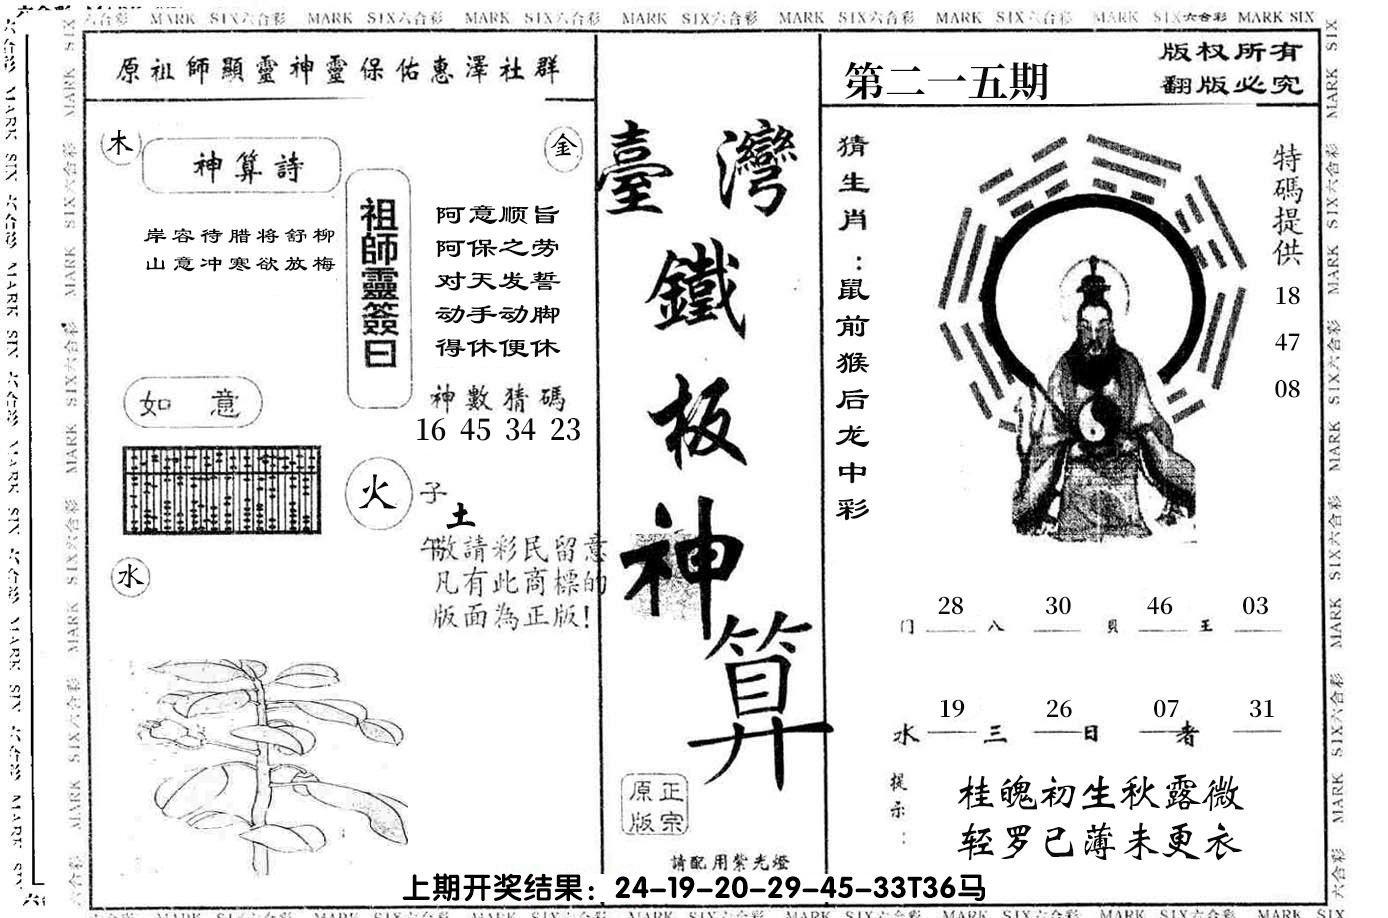 六合彩 MARK SIX六合彩 MARK SIX六合彩 MARK SIX六合彩 MARK SIX六合彩 MARK SIX六合彩 MARK SIX六合彩 MARK SIX六合彩 MARK SIX
原祖師顯靈神靈保佑惠澤社群
木
神算詩
金
岸容待腊将舒柳
山意冲寒欲放梅
祖師靈簽曰
阿意顺旨
阿保之劳
对天发誓
动手动脚
得休便休
如 意
神數猜碼
16 45 34 23
火
子
土
午
水
敬請彩民留意
凡有此商標的
版面為正版!
臺灣
鐵
板
神
算
正宗
原版
請配用紫光燈
第二一五期
版权所有
翻版必究
猜生肖:鼠前猴后龙中彩
特碼提供
18
47
08
28 30 46 03
门 八 贝 王
19 26 07 31
水 三 日 者
提示:
桂魄初生秋露微
轻罗已薄未更衣
上期开奖结果：24-19-20-29-45-33T36马